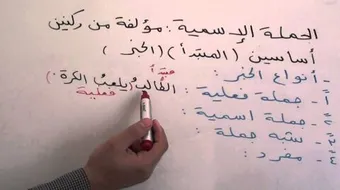 الجملة الاسمية : مؤلفة من ركنين
أساسين ( المبتدأ ) ( الخبر )
- أنواع الخبر :
مبتدأ
١- جملة فعلية : الطالبُ ( يلعبُ الكرة . )
فعلية
٢- جملة اسمية :
٣- شبه جملة :
٤- مفرد :